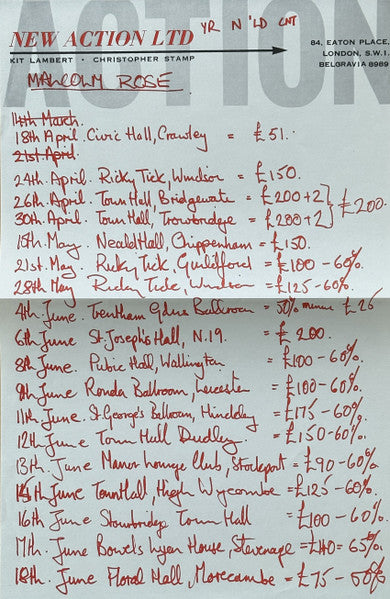 ACTION
NEW ACTION LTD
YR N 'LD CNT
KIT LAMBERT · CHRISTOPHER STAMP
84, EATON PLACE,
LONDON, S.W.1.
BELGRAVIA 8989
MALCOLM ROSE
14th March.
18th April. Civic Hall, Crawley = £51.
21st April
24th April. Ricky Tick, Windsor = £150.
26th April. Town Hall, Bridgewater = £200+2
30th April. Town Hall, Trowbridge = £200+2 } £200.
10th May. Neald Hall, Chippenham = £150.
21st. May Ricky Tick, Guildford = £100 - 60%.
28th May Ricky Tick, Windsor = £125-60%.
4th. June. Trentham Gdns Ballroom = 50% minus £25
6th June St Joseph's Hall, N.19. = £200.
8th June. Public Hall, Wallington = £100 - 60%.
9th June Ronda Ballroom, Leicester = £100-60%.
11th June. St. George's Ballroom, Hinckley = £175 - 60%.
12th June Town Hall Dudley. = £150-60%.
13th. June Manor Lounge Club, Stockport = £90-60%.
15th June Town Hall, High Wycombe = £125 - 60%.
16th June Stourbridge Town Hall = £100 - 60%.
17th. June Bowes Lyon House, Stevenage = £140 = 65%.
18th. June Floral Hall, Morecambe = £75 - 50%